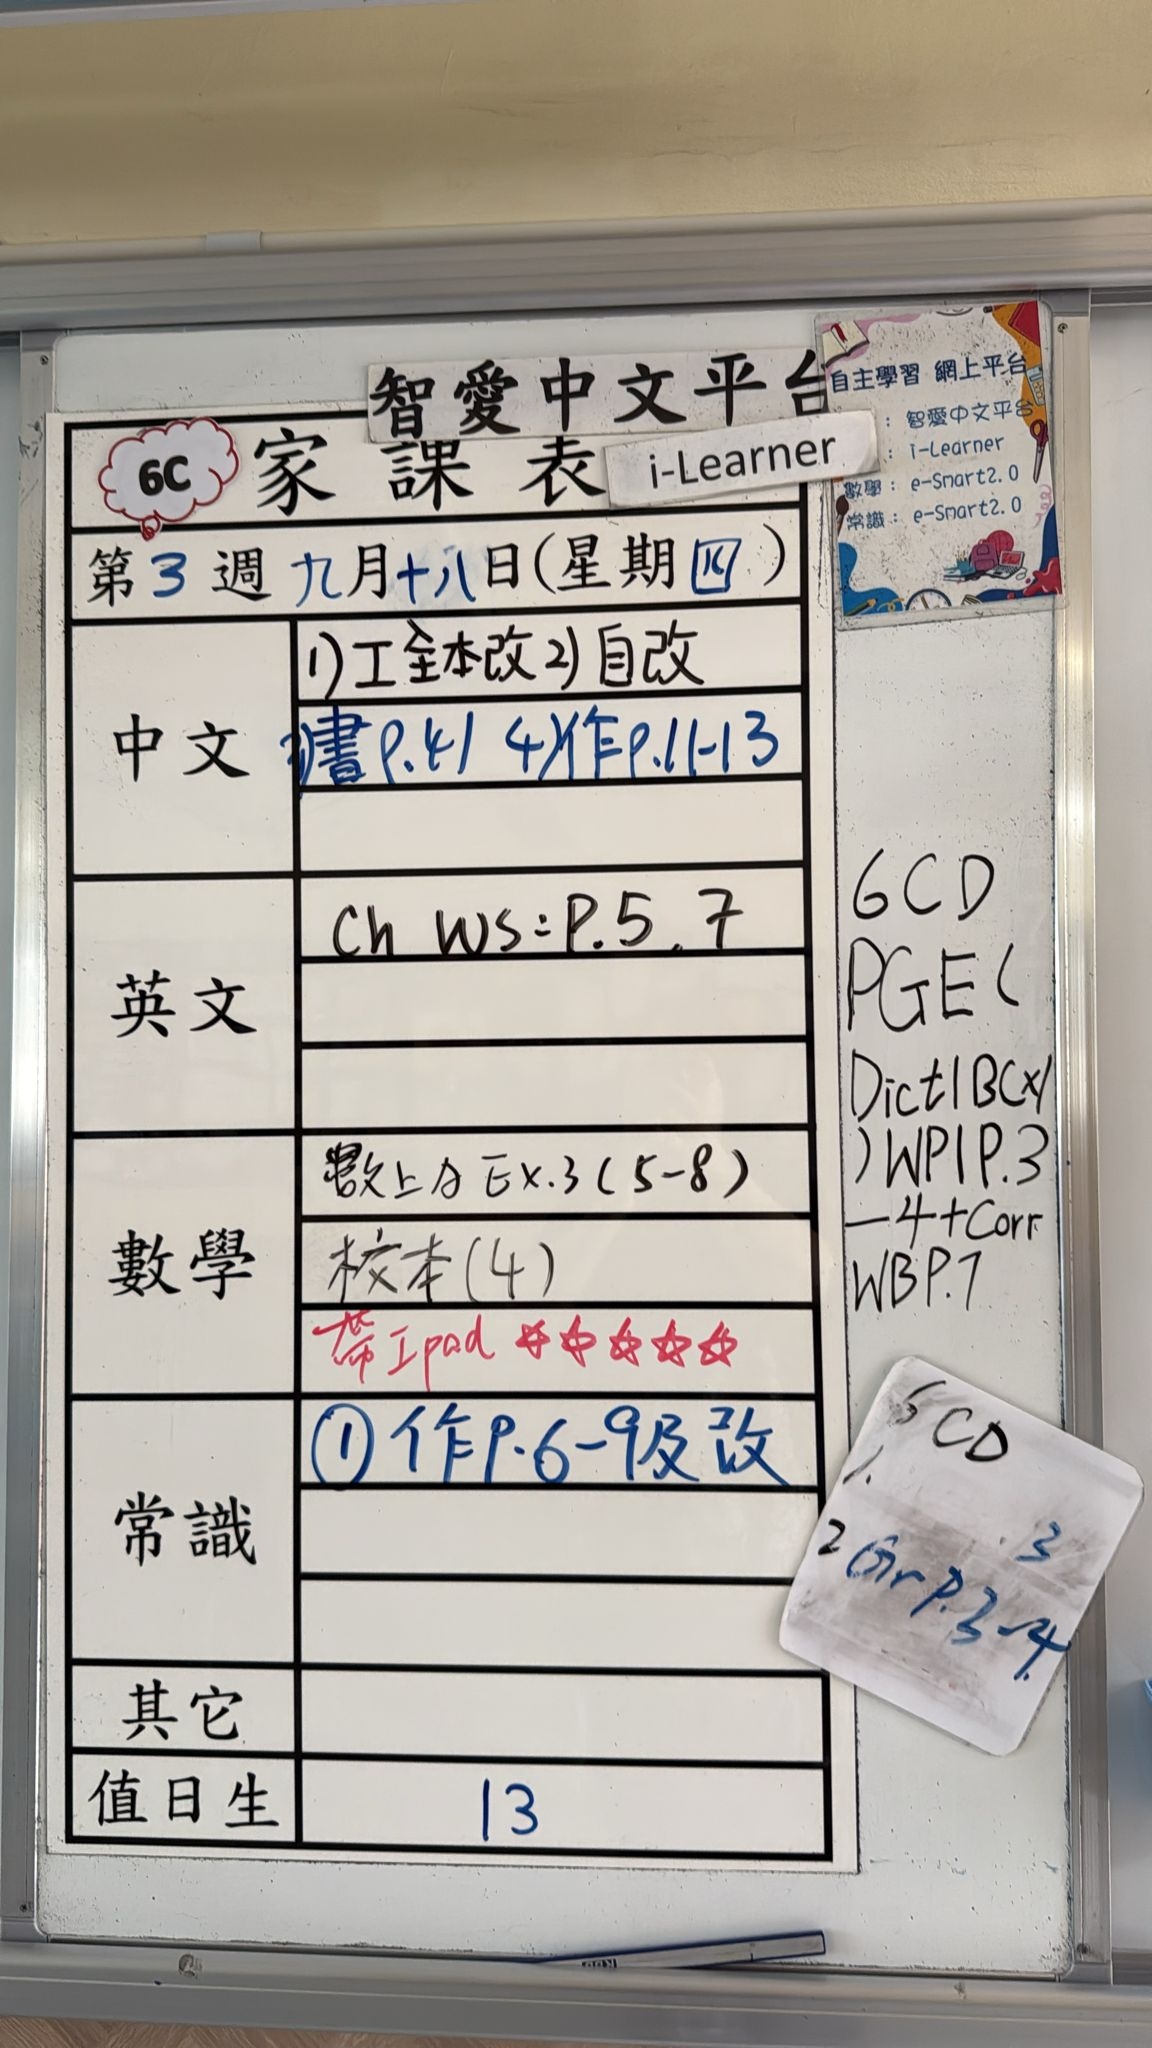 智愛中文平台
6C 家課表
i-Learner
自主學習 網上平台
: 智愛中文平台
: i-Learner
數學: e-Smart2.0
常識: e-Smart2.0
第3週 九月十八日(星期四)
中文
1)工全本改2)自改
3)書P.41 4)作P.11-13
英文
Ch WS:P.5.7
數學
數上A Ex.3(5-8)
校本(4)
帶Ipad ☆☆☆☆☆
常識
①作P.6-9及改
其它
值日生
13
6CD
PGE(
Dict1BCx1
)WP1P.3
-4+Corr
WBP.7
6CD
1.
.3
2 Gr P.3-4